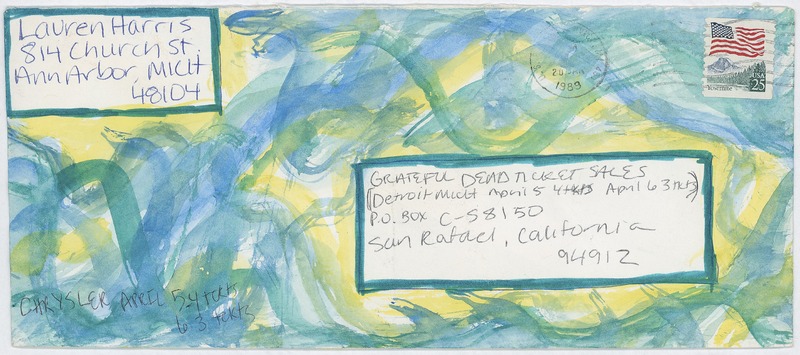 Lauren Harris
814 Church St.
Ann Arbor, MICH
48104
1989
USA
25
GRATEFUL DEAD TICKET SALES
(Detroit Mich April 5 4 tkts April 6 3 tkts)
P.O. BOX C-S8150
San Rafael, California
94912
CHRYSLER APRIL 5-4 tckts
6 3 tckts